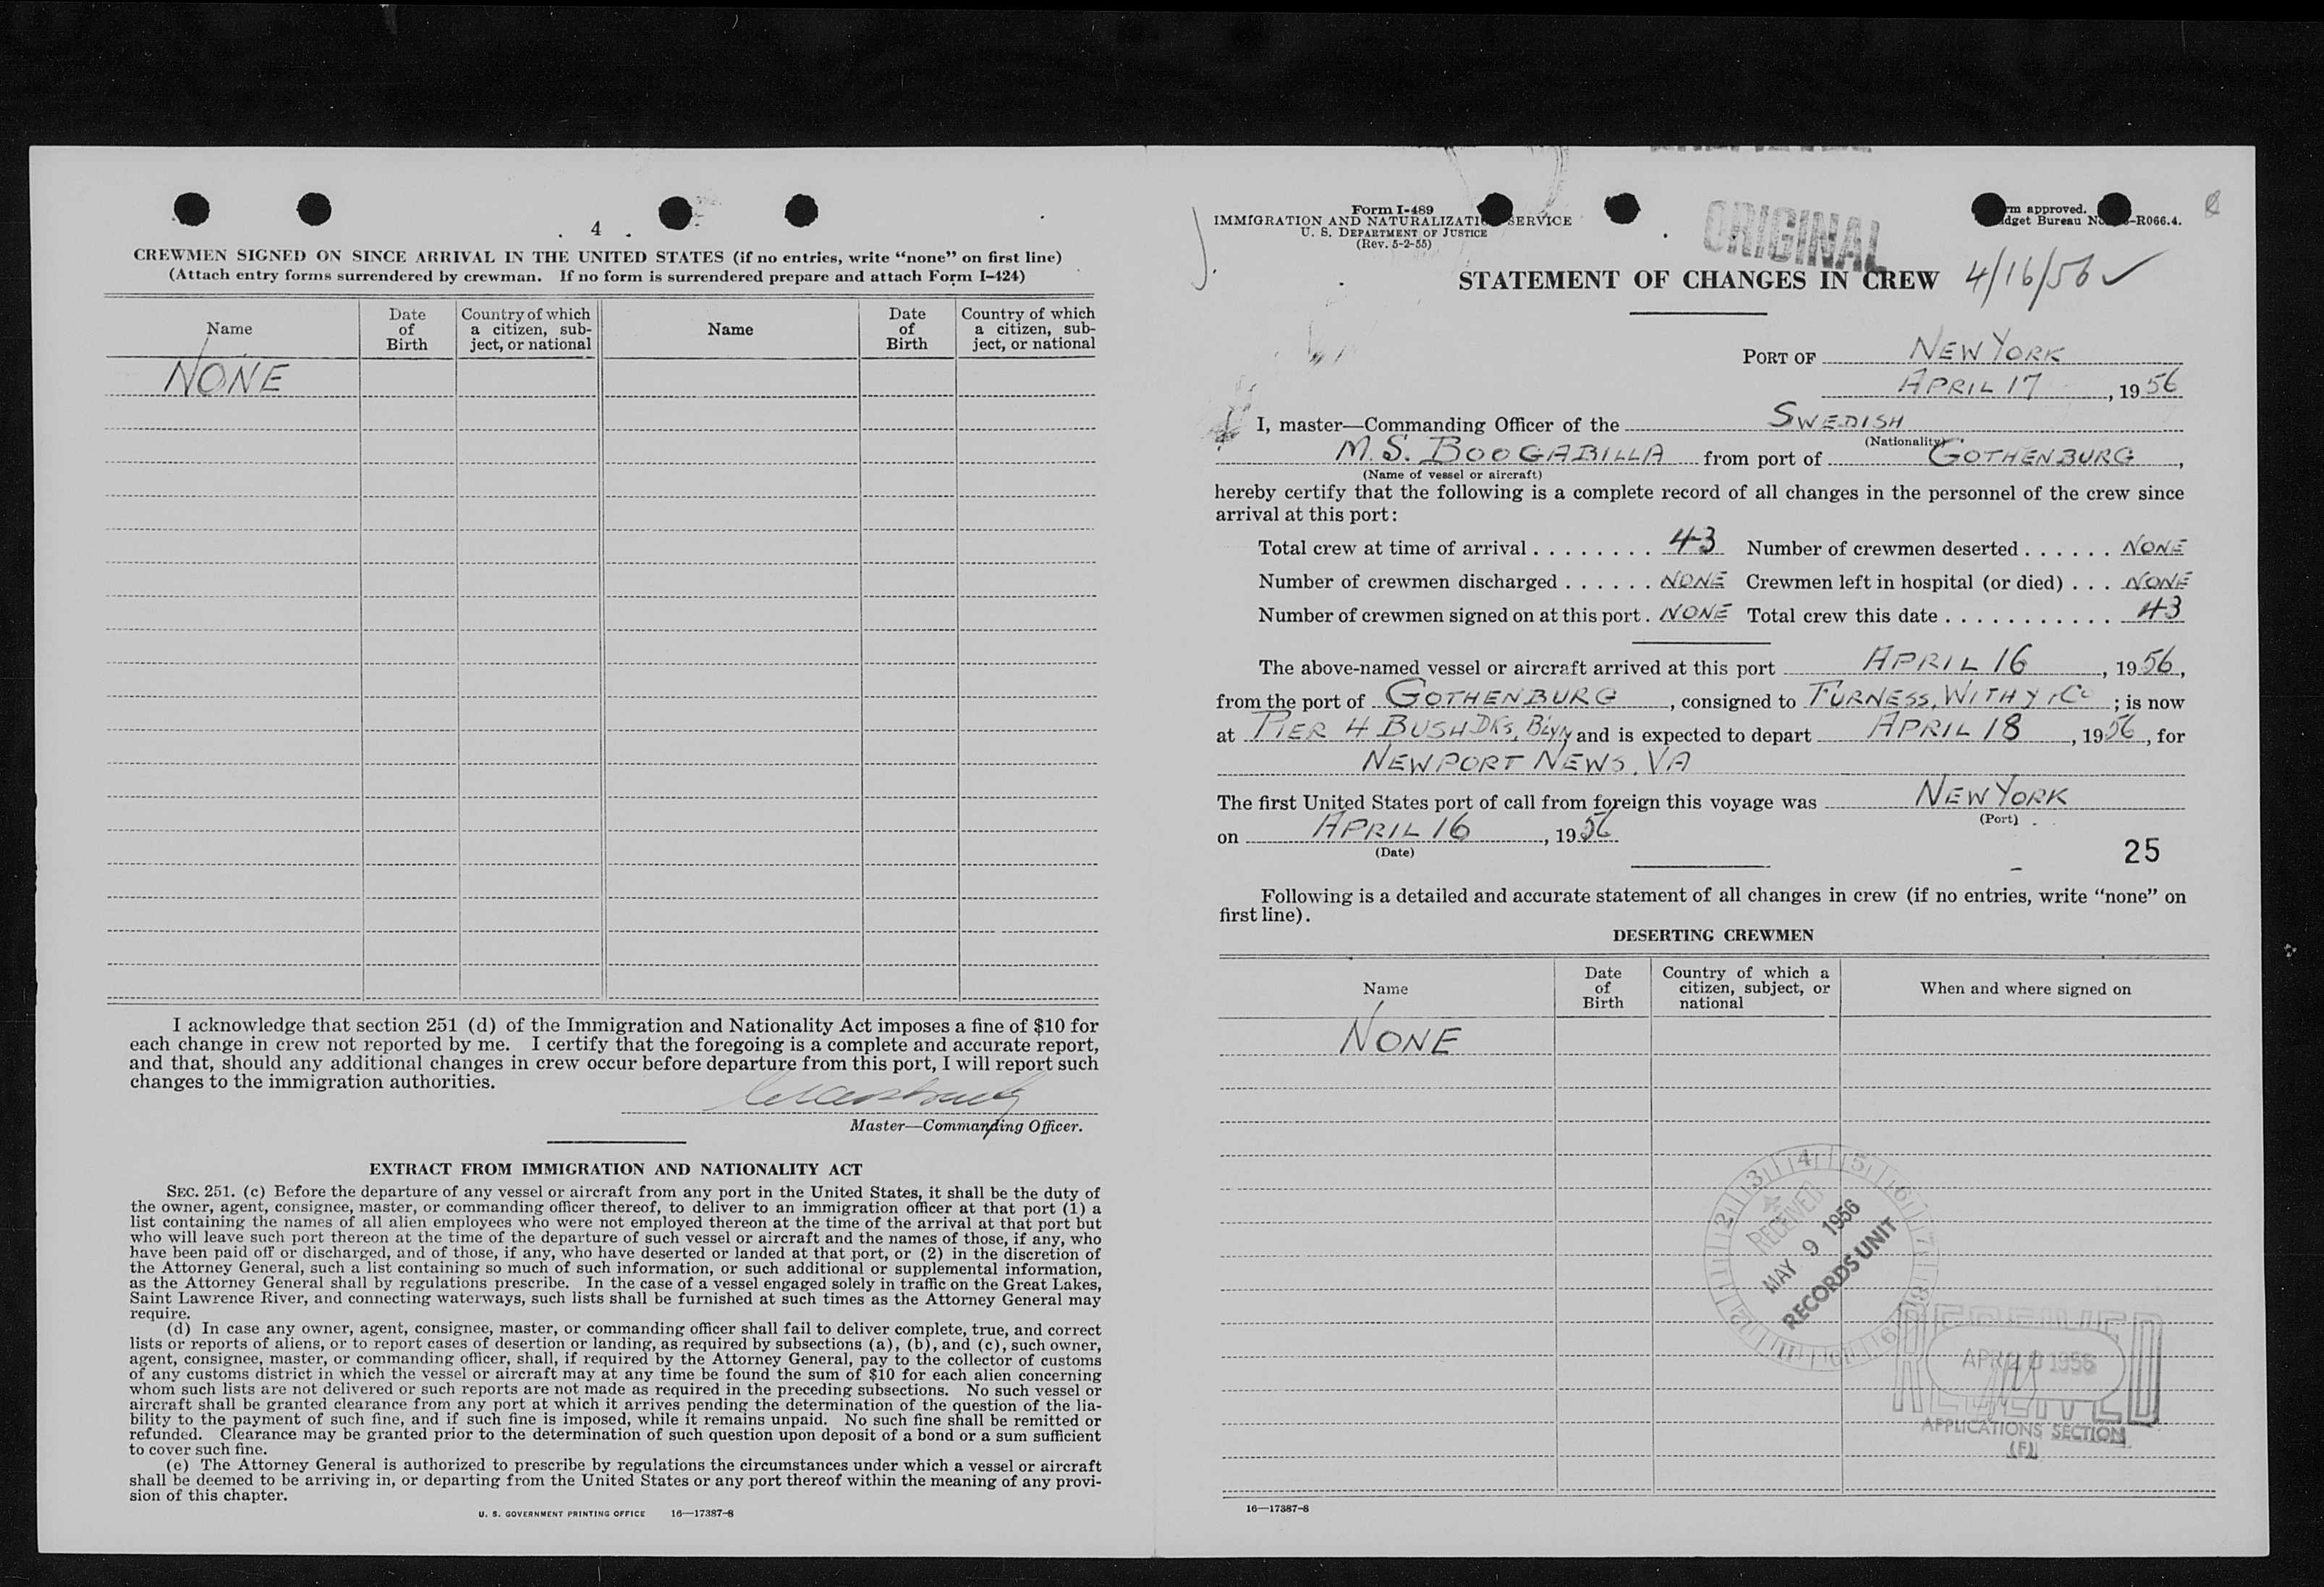 4
CREWMEN SIGNED ON SINCE ARRIVAL IN THE UNITED STATES (if no entries, write “none” on first line)
(Attach entry forms surrendered by crewman. If no form is surrendered prepare and attach Form I–424)
Name
Date of Birth
Country of which a citizen, subject, or national
Name
Date of Birth
Country of which a citizen, subject, or national
NONE
I acknowledge that section 251 (d) of the Immigration and Nationality Act imposes a fine of $10 for
each change in crew not reported by me. I certify that the foregoing is a complete and accurate report,
and that, should any additional changes in crew occur before departure from this port, I will report such
changes to the immigration authorities.
Master—Commanding Officer.
EXTRACT FROM IMMIGRATION AND NATIONALITY ACT
SEC. 251. (c) Before the departure of any vessel or aircraft from any port in the United States, it shall be the duty of
the owner, agent, consignee, master, or commanding officer thereof, to deliver to an immigration officer at that port (1) a
list containing the names of all alien employees who were not employed thereon at the time of the arrival at that port but
who will leave such port thereon at the time of the departure of such vessel or aircraft and the names of those, if any, who
have been paid off or discharged, and of those, if any, who have deserted or landed at that port, or (2) in the discretion of
the Attorney General, such a list containing so much of such information, or such additional or supplemental information,
as the Attorney General shall by regulations prescribe. In the case of a vessel engaged solely in traffic on the Great Lakes,
Saint Lawrence River, and connecting waterways, such lists shall be furnished at such times as the Attorney General may
require.
(d) In case any owner, agent, consignee, master, or commanding officer shall fail to deliver complete, true, and correct
lists or reports of aliens, or to report cases of desertion or landing, as required by subsections (a), (b), and (c), such owner,
agent, consignee, master, or commanding officer, shall, if required by the Attorney General, pay to the collector of customs
of any customs district in which the vessel or aircraft may at any time be found the sum of $10 for each alien concerning
whom such lists are not delivered or such reports are not made as required in the preceding subsections. No such vessel or
aircraft shall be granted clearance from any port at which it arrives pending the determination of the question of the lia-
bility to the payment of such fine, and if such fine is imposed, while it remains unpaid. No such fine shall be remitted or
refunded. Clearance may be granted prior to the determination of such question upon deposit of a bond or a sum sufficient
to cover such fine.
(e) The Attorney General is authorized to prescribe by regulations the circumstances under which a vessel or aircraft
shall be deemed to be arriving in, or departing from the United States or any port thereof within the meaning of any provi-
sion of this chapter.
U. S. GOVERNMENT PRINTING OFFICE 16—17387-8
Form I-489
IMMIGRATION AND NATURALIZATI SERVICE
U. S. DEPARTMENT OF JUSTICE
(Rev. 5-2-55)
ORIGINAL
rm approved.
dget Bureau N -R066.4.
STATEMENT OF CHANGES IN CREW 4/16/56 ✓
PORT OF NEW YORK
APRIL 17, 1956
I, master—Commanding Officer of the SWEDISH
(Nationality)
M.S. BOOGABILLA from port of GOTHENBURG,
(Name of vessel or aircraft)
hereby certify that the following is a complete record of all changes in the personnel of the crew since
arrival at this port:
Total crew at time of arrival . . . . . . . . 43 Number of crewmen deserted . . . . . . NONE
Number of crewmen discharged . . . . . . NONE Crewmen left in hospital (or died) . . . NONE
Number of crewmen signed on at this port . NONE Total crew this date . . . . . . . . . . . 43
The above-named vessel or aircraft arrived at this port APRIL 16, 1956,
from the port of GOTHENBURG, consigned to FURNESS, WITHY & Co ; is now
at PIER 4 BUSH DKS, BLYN and is expected to depart APRIL 18, 1956, for
NEWPORT NEWS, VA
The first United States port of call from foreign this voyage was NEW YORK
(Port)
on APRIL 16, 1956
(Date)
25
Following is a detailed and accurate statement of all changes in crew (if no entries, write “none” on
first line).
DESERTING CREWMEN
Name
Date of Birth
Country of which a citizen, subject, or national
When and where signed on
NONE
RECEIVED
MAY 9 1956
RECORDS UNIT
RECEIVED
1956
APPLICATIONS SECTION
(F)
16—17387-8